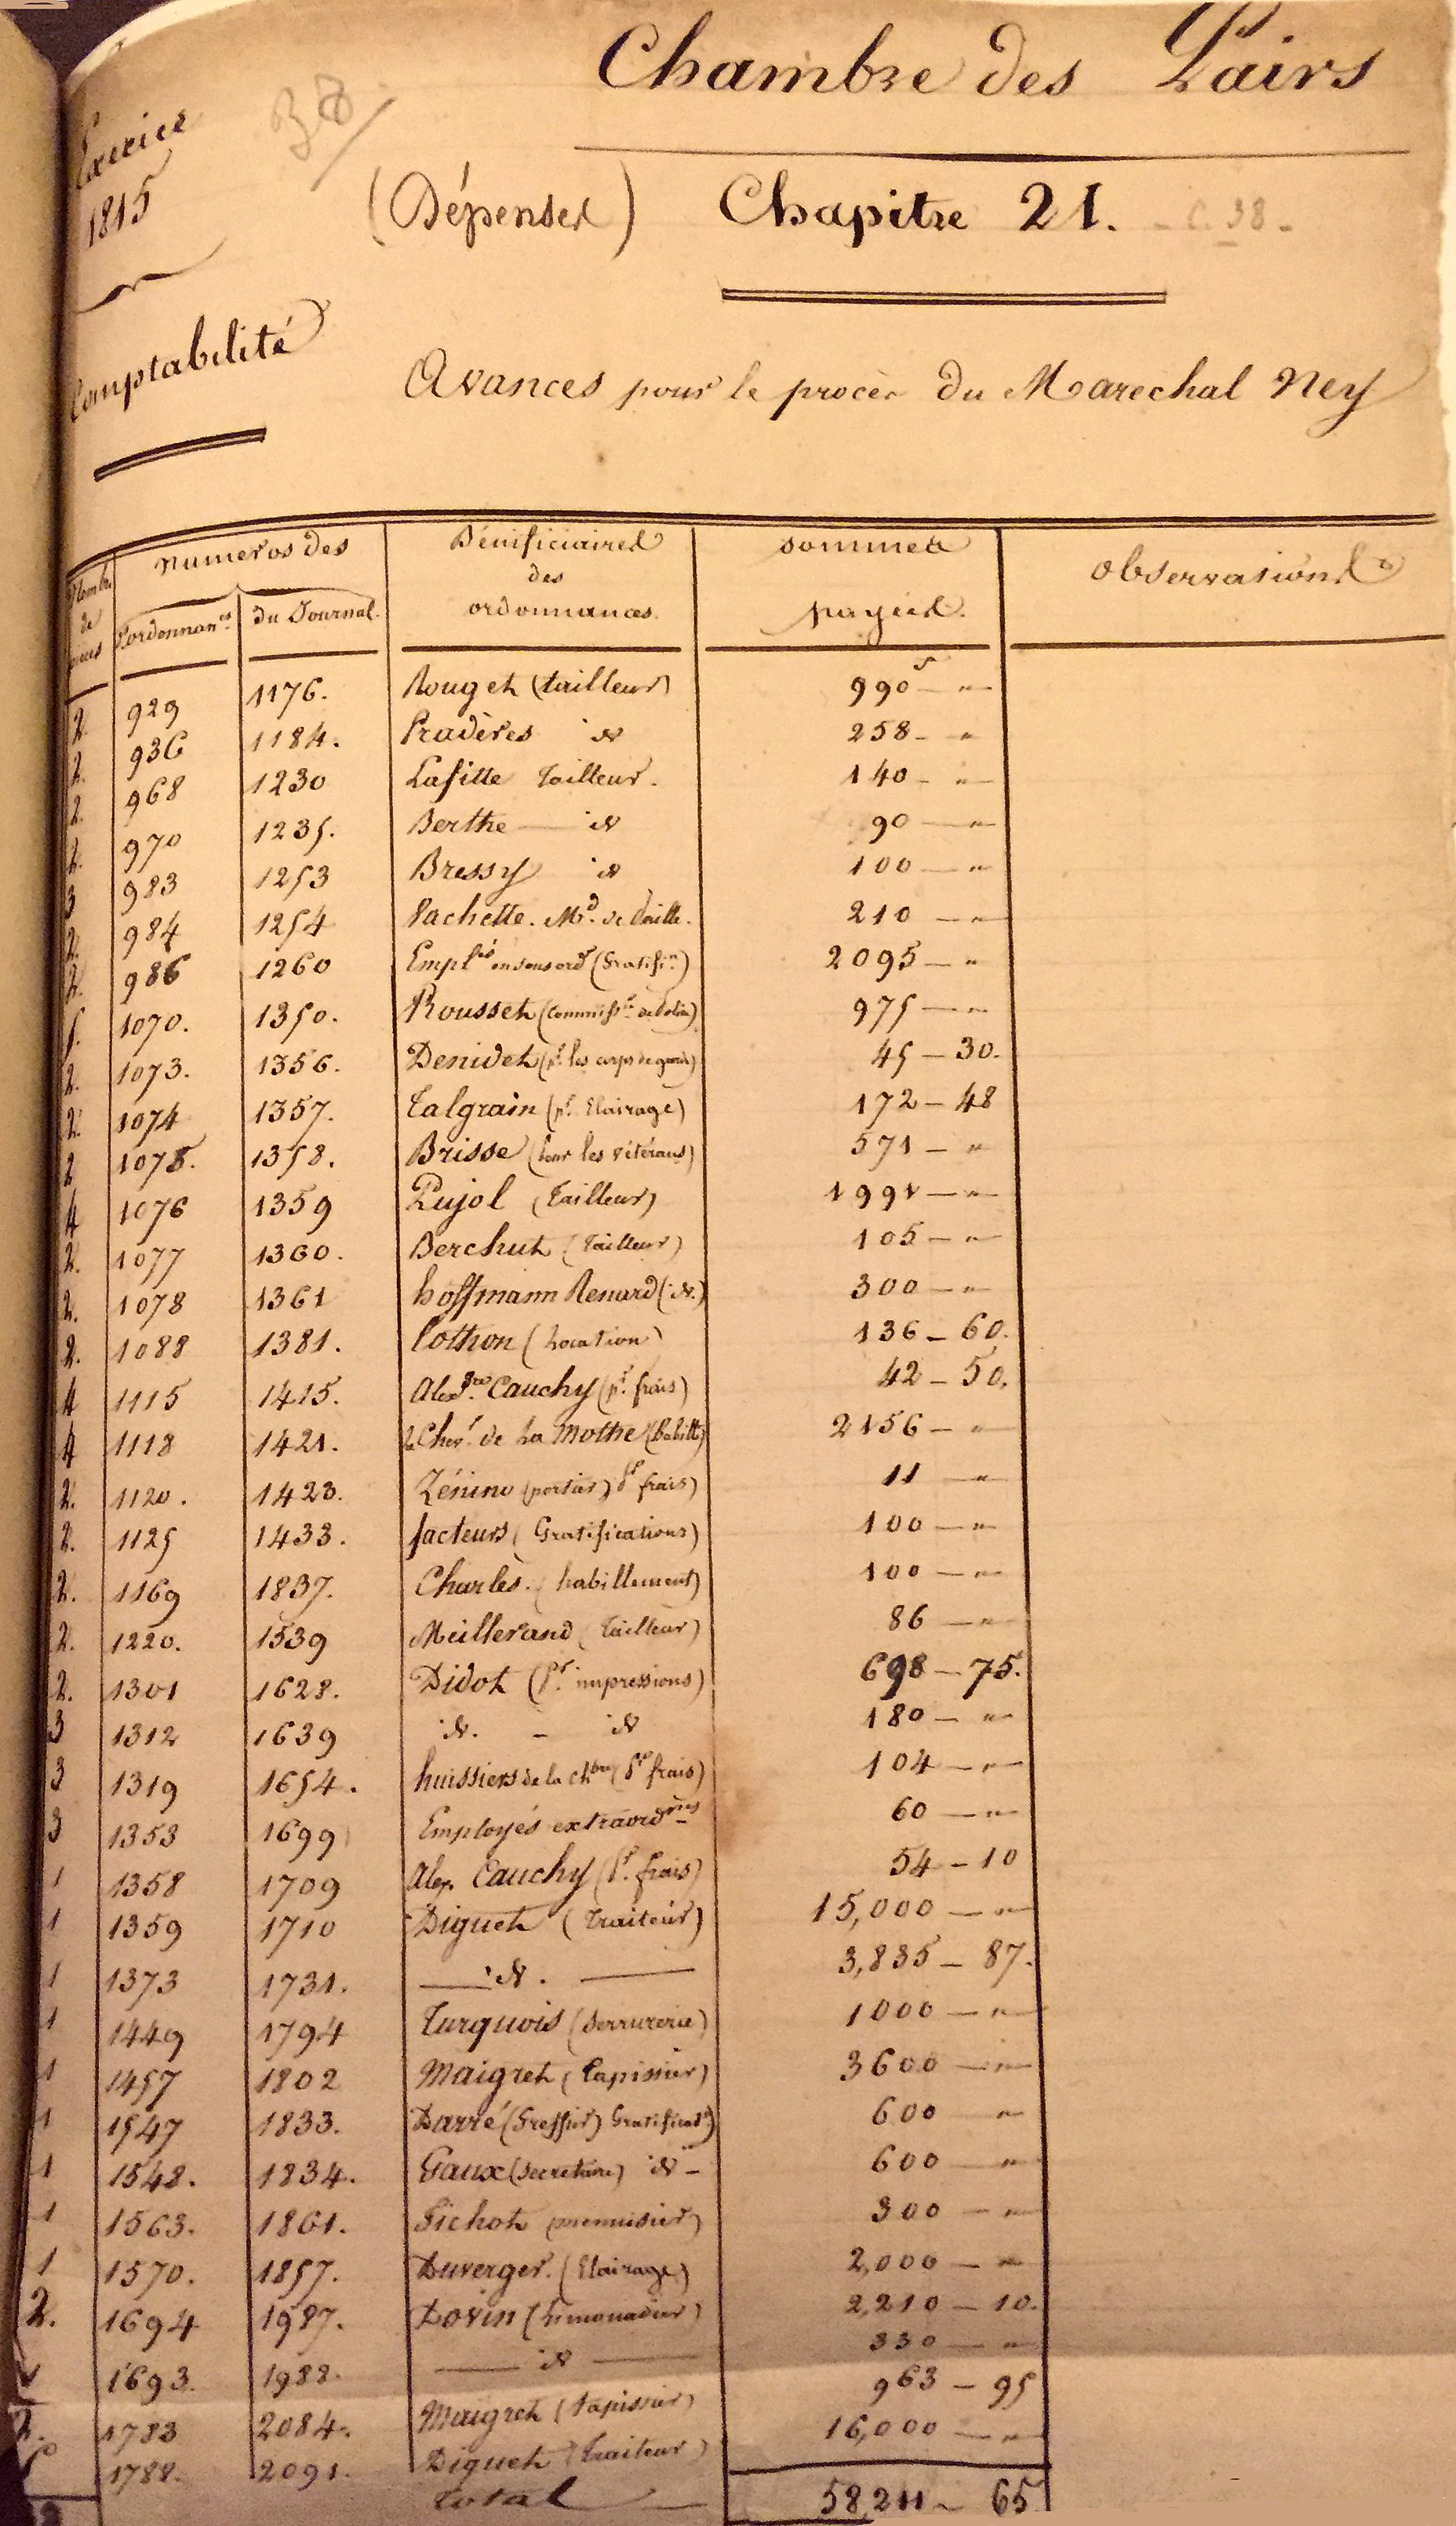 Chambre des Pairs
Exercice
1815
(Dépenses) Chapitre 21. - C. 38 -
Comptabilité
Avances pour le procès du Marechal Ney
Nomb. de pieces | numeros des | Bénificiaires des ordonnances. | sommes payées. | observations
d'ordonnanes | du Journal.
2. 929 1176. Rouget (tailleur) 990 f — "
2. 936 1184. Pradères id 258 - "
2. 968 1230 Lafitte Tailleur. 140 - "
2. 970 1235. Berthe — id 90 — "
3 983 1253 Bressy id 100 — "
2. 984 1254 Pachette. Md. de 210 — "
2. 986 1260 Emplés en sous ord (Gratifin) 2095 — "
1070. 1350. Rousset (Commissre de police) 975 — "
2. 1073. 1356. Denidet (pr. les corps de garde) 45 — 30.
2. 1074 1357. Talgrain (pr. Elairage) 172 — 48
2 1075. 1358. Brisse (pour les vétérans) 571 — "
4 1076 1359 Pujol (Tailleur) 1991 — "
2. 1077 1360. Berchut (Tailleur) 105 — "
2. 1078 1361 hoffmann Renard (id.) 300 — "
2. 1088 1381. Cothon (Location) 136 — 60.
4 1115 1415. Alexdre Cauchy (pr. frais) 42 — 50.
4 1118 1421. Le Cher. de La Mothe (habillt) 2156 — "
2. 1120. 1423. Zénino (portier) pr frais) 11 — "
2. 1125 1433. facteurs (Gratifications) 100 — "
2. 1169 1837. Charles. (habillement) 100 — "
2. 1220. 1539 Meillerand (Tailleur) 86 — "
2. 1301 1628. Didot (Pr. impressions) 698 — 75.
3 1312 1639 id. - id 180 — "
3 1319 1654. huissiers de la chbre (Pr frais) 104 — "
3 1353 1699 Employés extraordres 60 — "
1 1358 1709 Alex. Cauchy (Pr. frais) 54 — 10
1 1359 1710 Diguet (Traiteur) 15,000 — "
1 1373 1731. — id. — 3,835 — 87.
1 1449 1794 Turquois (Serrurerie) 1000 — "
1 1457 1802 Maigret (Tapissier) 3600 — "
1 1547 1833. Darré (Greffier) Gratificat.) 600 "
1 1548. 1834. Gaux (Secretaire) id - 600 — "
1 1563. 1861. Pichot (menuisier) 300 — "
1 1570. 1857. Duverger. (Elairage) 2,000 — "
2. 1694 1987. Dovin (Limonadier) 2,210 — 10.
1693. 1988. — id — 330 — "
2. 1783 2084. Maigret (Tapissier) 963 — 95
1788. 2091. Diguet (Traiteur) 16,000 — "
Total — 58,211 — 65